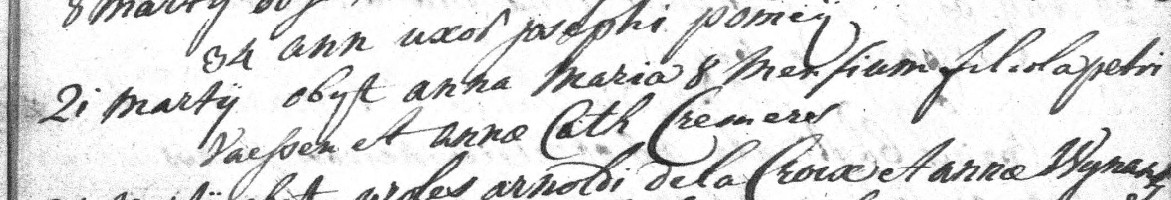 8 marty
34 ann uxor josephi pomeÿ
21 martÿ obyt anna maria 8 mensium filiola petri
Vaessen et annæ Cath Cremers
obyt proles arnoldi dela Croix et annæ Wynants